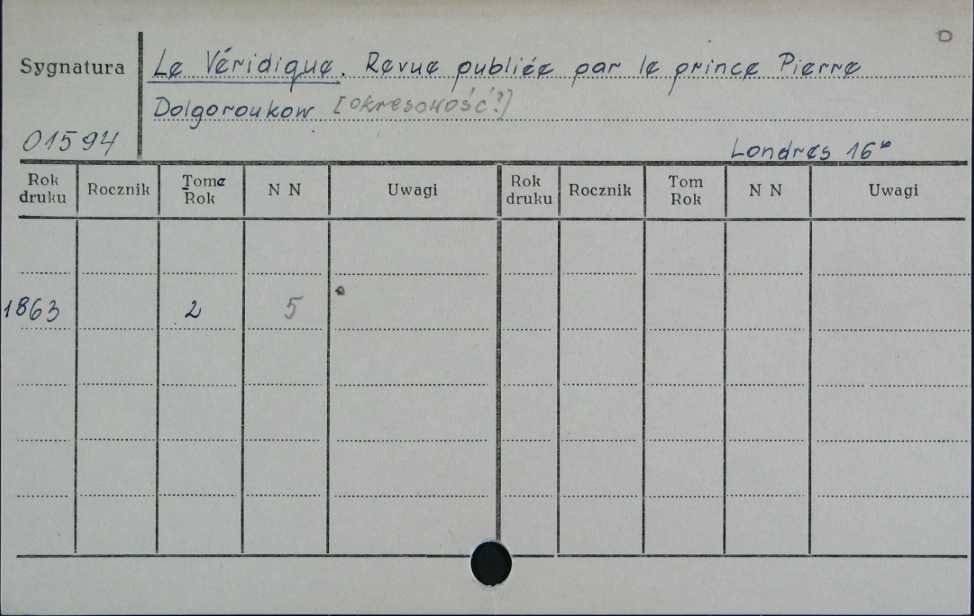 D
Sygnatura
Le Véridique. Revue publiée par le prince Pierre
Dolgoroukow [okresowość?]
01594
Londres 16°
Rok druku Rocznik Tome Rok N N Uwagi Rok druku Rocznik Tom Rok N N Uwagi
1863 2 5